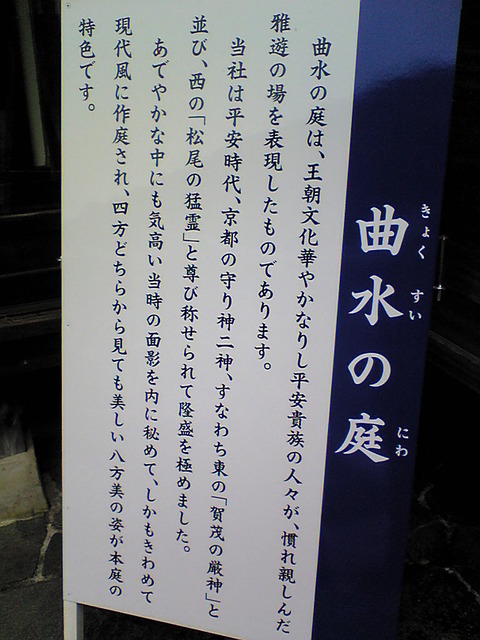 曲水の庭
きょく
すい
にわ
曲水の庭は、王朝文化華やかなりし平安貴族の人々が、慣れ親しんだ
雅遊の場を表現したものであります。
当社は平安時代、京都の守り神二神、すなわち東の「賀茂の厳神」と
並び、西の「松尾の猛霊」と尊び称せられて隆盛を極めました。
あでやかな中にも気高い当時の面影を内に秘めて、しかもきわめて
現代風に作庭され、四方どちらから見ても美しい八方美の姿が本庭の
特色です。